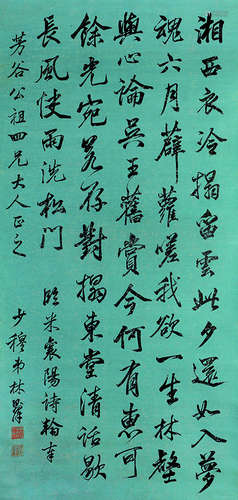 湘西衣冷搨留雲此夕還如入夢
魂六月薜蘿嗟我欲一生林壑
與心論吳王舊賞今何有惠可
餘光宛若存對搨東堂清話歇
長風快雨洗松門
臨米襄陽詩於
芳谷公祖四兄大人正之
少穆弟林